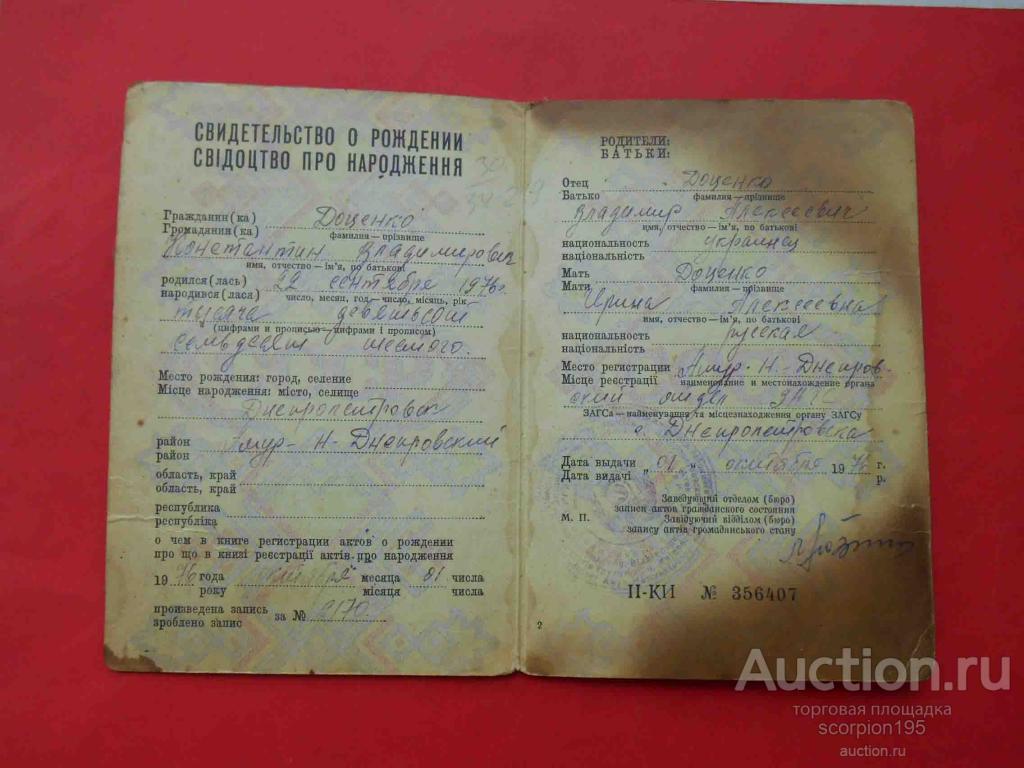 СВИДЕТЕЛЬСТВО О РОЖДЕНИИ
СВІДОЦТВО ПРО НАРОДЖЕННЯ
Гражданин(ка) Доценко
Громадянин(ка) фамилия—прізвище
Константин Владимирович
имя, отчество—ім'я, по батькові
родился(лась) 22 сентября 1976г.
народився(лася) число, месяц, год—число, місяць, рік
тысяча девятьсот
(цифрами и прописью—цифрами і прописом)
семьдесят шестого.
Место рождения: город, селение
Місце народження: місто, селище
Днепропетровск
район Амур-Н-Днепровский
район
область, край
область, край
республика
республіка
о чем в книге регистрации актов о рождении
про що в книзі реєстрації актів про народження
1976 года октября месяца 01 числа
року місяця числа
произведена запись за № 2170.
зроблено запис
РОДИТЕЛИ:
БАТЬКИ:
Отец Доценко
Батько фамилия—прізвище
Владимир Алексеевич
имя, отчество—ім'я, по батькові
национальность украинец
національність
Мать Доценко
Мати фамилия—прізвище
Ирина Алексеевна
имя, отчество—ім'я, по батькові
национальность русская
національність
Место регистрации Амур-Н-Днепров-
Місце реєстрації наименование и местонахождение органа
ский отдел ЗАГС
ЗАГСа—найменування та місцезнаходження органу ЗАГСу
г. Днепропетровска
Дата выдачи „01" октября 1976 г.
Дата видачі р.
Заведующий отделом (бюро)
записи актов гражданского состояния
М. П. Завідуючий відділом (бюро)
запису актів громадянського стану
II-КИ № 356407
2
Auction.ru
торговая площадка
scorpion195
auction.ru